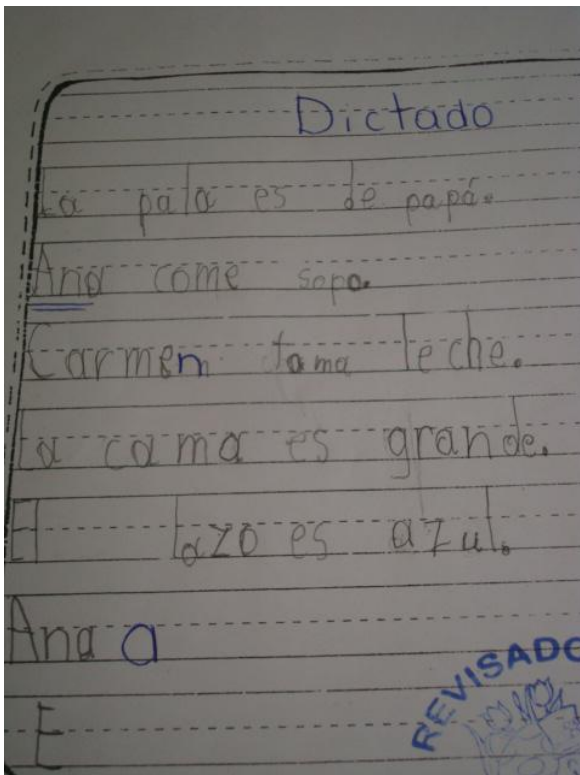 Dictado
La pala es de papá.
Ana come sopa.
Carmen toma leche.
La cama es grande.
El lazo es azul.
Ana a
E
REVISADO